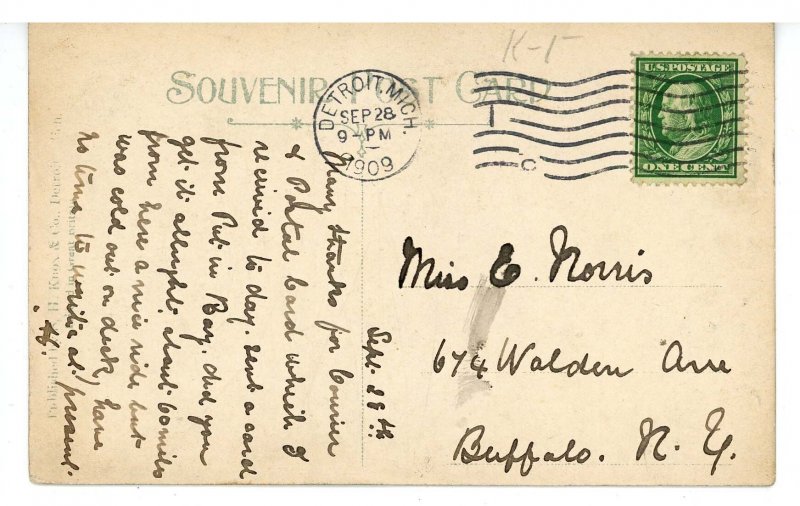 K-5
SOUVENIR POST CARD
DETROIT, MICH.
SEP 28
9-PM
1909
U.S. POSTAGE
ONE CENT
Miss E. Norris
674 Walden Ave
Buffalo. N. Y.
Sept. 28th
Many thanks for Courier
& Postal Card which I
received to day. sent a card
from Put in Bay. did you
get it allright. about 60 miles
from here a nice ride but
was cold out on deck, have
no time to write at present.
H. Knox & Co., Detroit